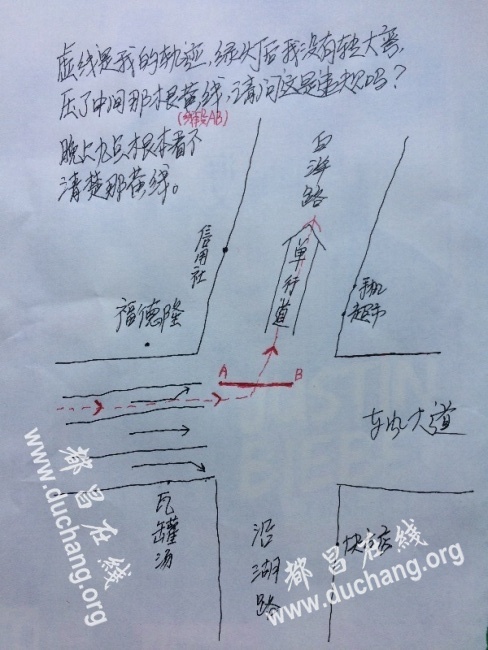 虚线是我的轨迹,绿灯后我没有转大弯,
压了中间那根黄线,请问这是违规吗?
(线段AB)
晚上九点根本看不
清楚那黄线。
白洋路
信用社
单行道
手机超市
福德隆
A B
东风大道
瓦罐汤
沿湖路
都昌在线
www.duchang.org
都昌在线
www.duchang.org